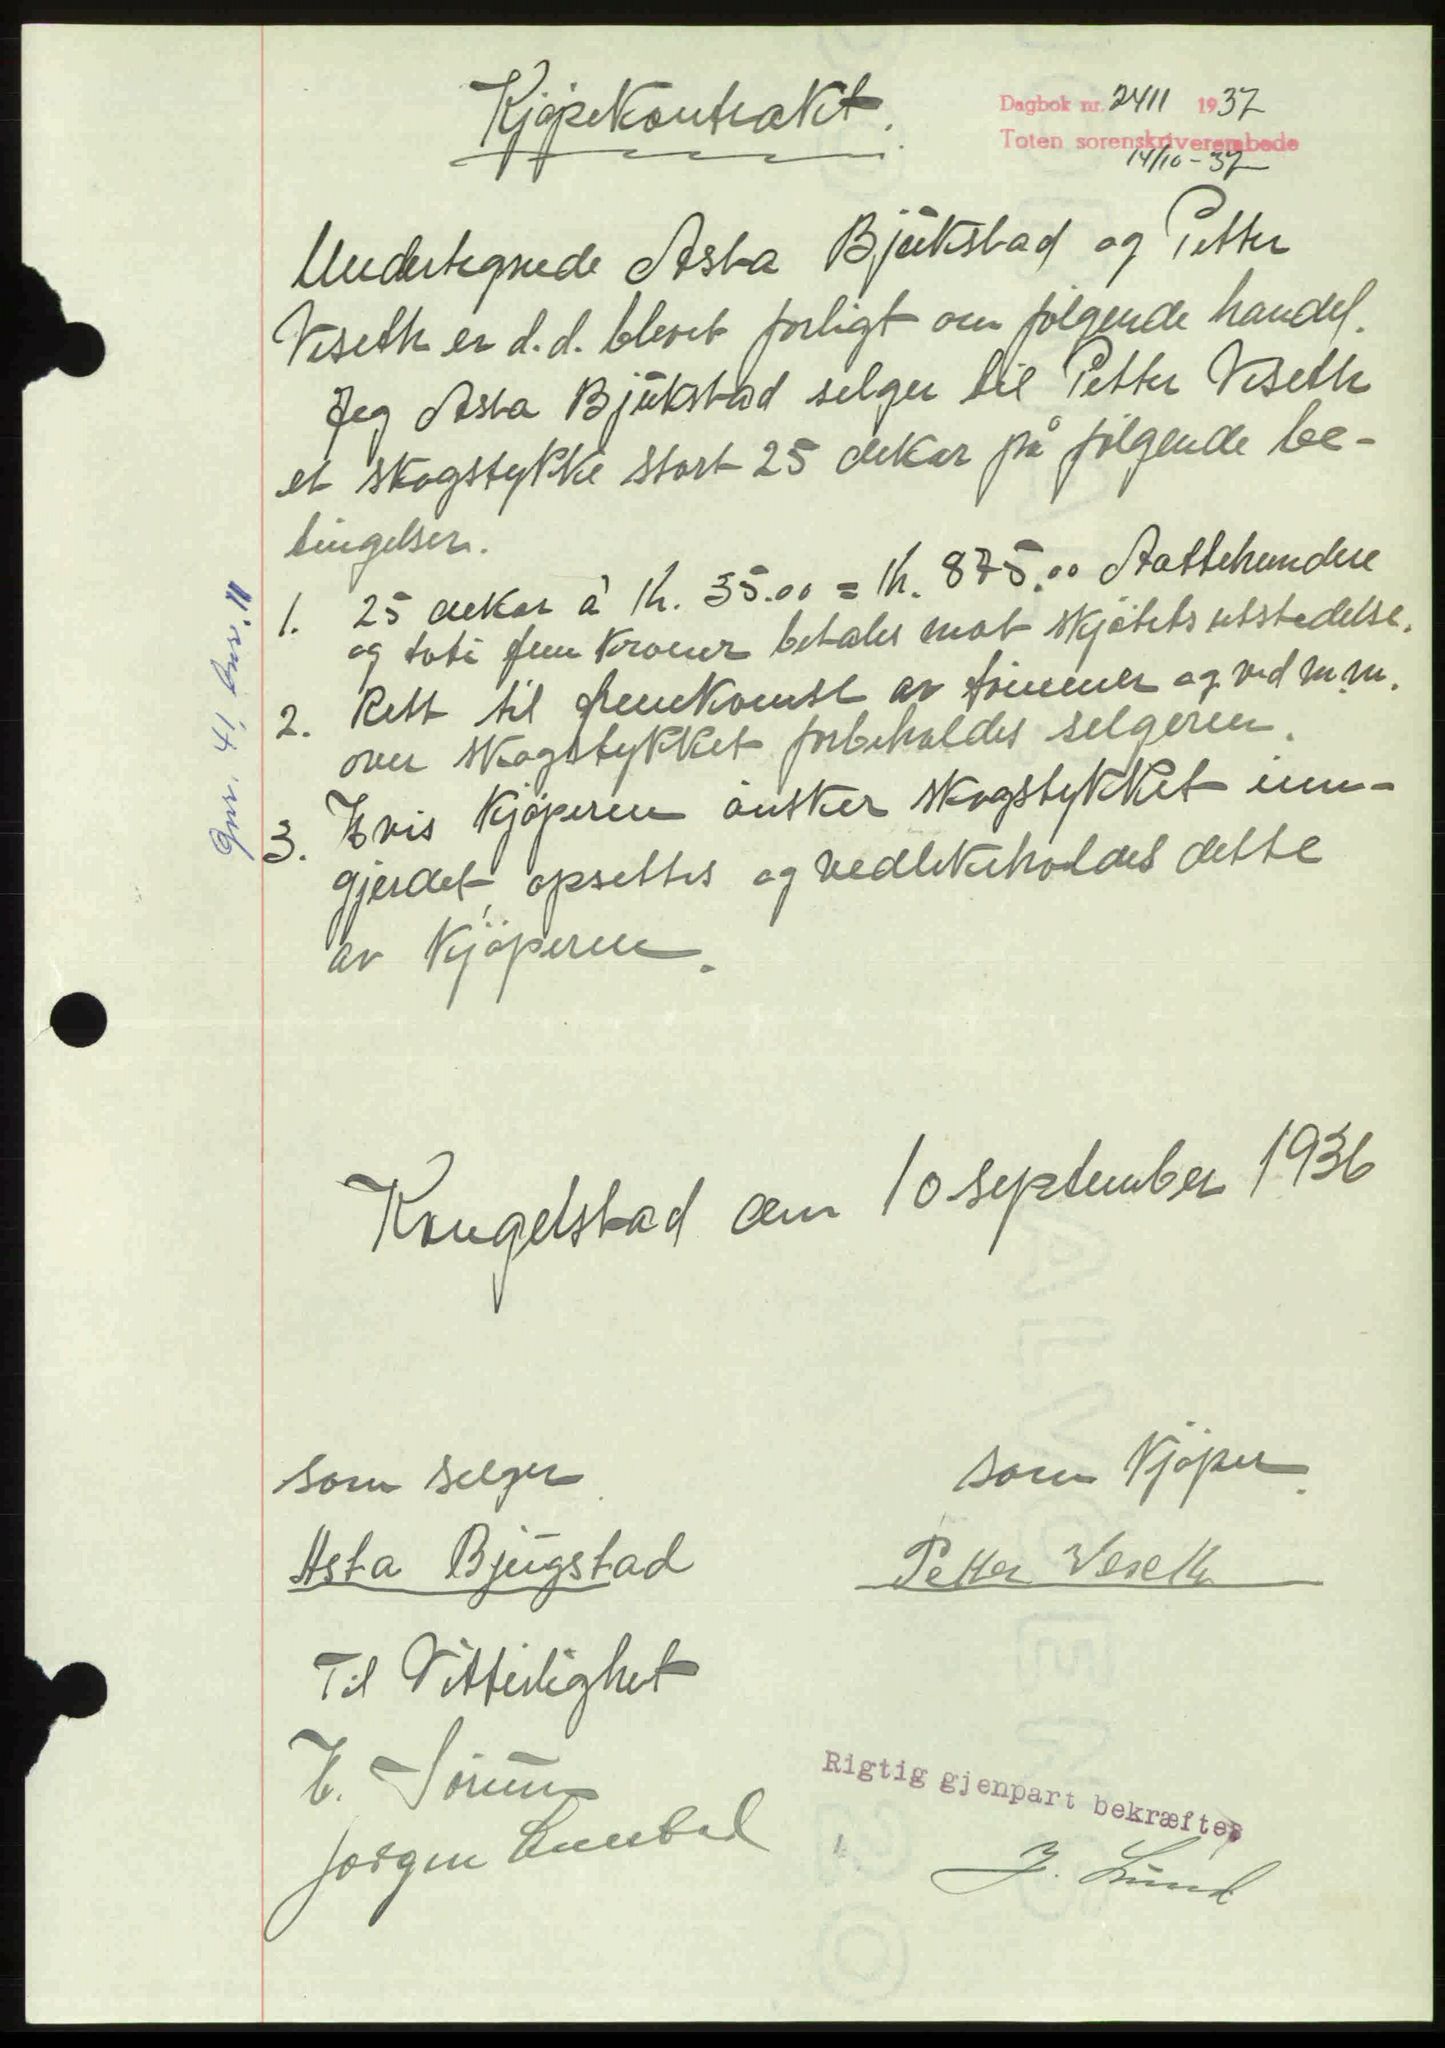 Kjøpekontrakt.
Dagbok nr. 2411 1937
Toten sorenskriverembede
14/10-37
Undertegnede Asta Bjükstad og Petter
Veseth er d.d. blevet forligt om følgende handel.
Jeg Asta Bjükstad selger til Petter Veseth
et skogstykke stort 25 dekar på følgende be-
tingelser.
1. 25 dekar á Kr. 35.00 = Kr. 875.00 Aattehundre
og søtti fem kroner betales mot skjøtets utstedelse.
2. Rett til fremkomst av tømmer og ved m.m.
over skogstykket forbeholdes selgeren.
3. Hvis kjøperen ønsker skogstykket inn-
gjerdet, opsettes og vedlikeholdes dette
av kjøperen.
Gnr. 41, bnr. 11
Kongelstad den 10 september 1936
som selger
som kjøper.
Asta Bjügstad
Petter Veseth
Til Vitterlighet
H. Sörum
Jørgen
Rigtig gjenpart bekræftes
J. Lund